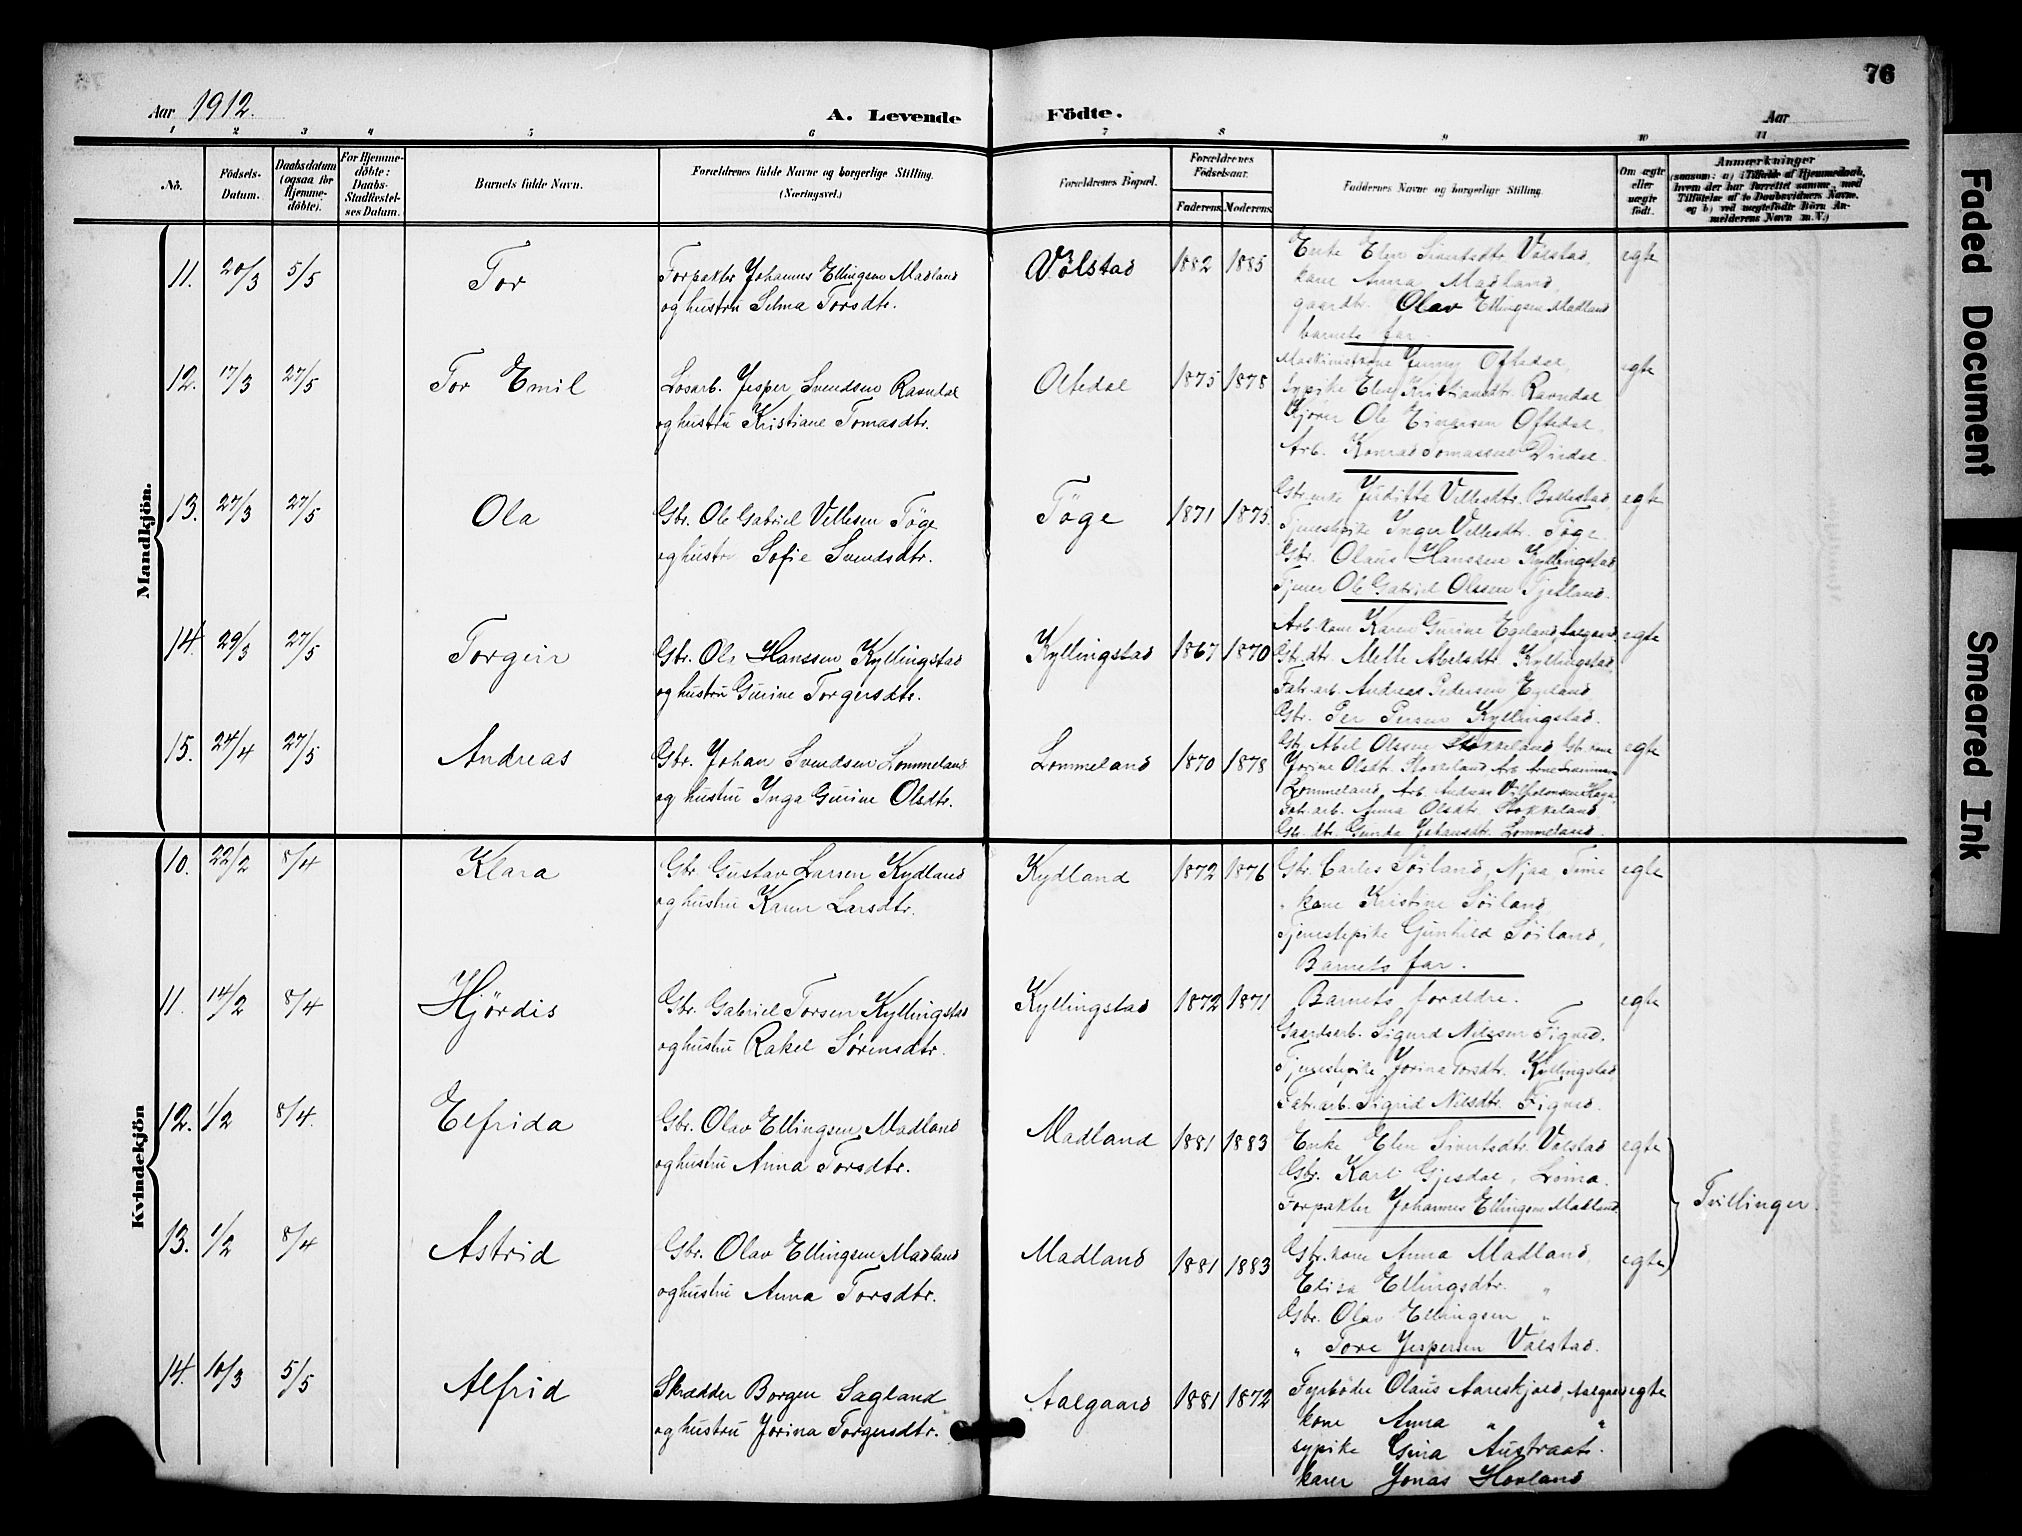 76
Aar 1912.
A. Levende Födte.
Aar
1 2 3 4 5 6 7 8 9 10 11
No.
Födsels-Datum.
Daabsdatum (ogsaa for Hjemme-döbte).
For Hjemme-döbte: Daabs-Stadfæstel-ses Datum.
Barnets fulde Navn.
Forældrenes fulde Navne og borgerlige Stilling. (Næringsvei.)
Forældrenes Bopæl.
Forældrenes Födselsaar.
Faderens. Moderens.
Faddernes Navne og borgerlige Stilling.
Om ægte eller uægte født.
Anmærkninger
(saasom: a) i Tilfælde af Hjemmedaab, hvem der har forrettet samme, med Tilföielse af to Daabsvidners Navne, og b) ved uægtefödte Börn An-melderens Navn m. V.)
Mandkjön.
11. 20/3 5/5 Tor
Forpakter Johannes Ellingsen Madland
og hustru Selma Torsdtr.
Vølstad 1882 1885
Enke Elen Sivertsdtr. Vølstad,
kone Anna Madland,
gaardbr. Olav Ellingsen Madland
barnets far.
egte
12. 17/3 27/5 Tor Emil
Løsarb. Jesper Svendsen Ravndal
og hustru Kristiane Tomasdtr.
Oltedal 1875 1878
Jenny Oftedal,
sypike Elen Kristiansdtr. Ravndal
Ole Einersen Oftedal,
Arb. Konrad Tomassen Dirdal.
egte
13. 27/3 27/5 Ola
Gbr. Ole Gabriel Villesen Tøge
og hustru Sofie Svendsdtr.
Tøge 1871 1875
Gbr.enke Juditta Villesdtr.
Tjenestepike Inger Villesdtr. Tøge
Gbr. Olaus Hanssen Kyllingstad
Tjener Ole Gabriel Olssen Tjetland.
egte
14. 29/3 27/5 Torgeir
Gbr. Ole Hanssen Kyllingstad
og hustru Gurine Torgersdtr.
Kyllingstad 1867 1870
Arb. kone Karen Gurine Egeland, Aalgaard,
Gbr. dtr. Mette Abelsdtr. Kyllingstad,
Fabr.arb. Andreas Pedersen Egeland
Gbr. Per Persen Kyllingstad.
egte
15. 24/4 27/5 Andreas
Gbr. Johan Svendsen Lommeland
og hustru Inga Gurine Olsdtr.
Lommeland 1870 1878
Gbr. Abel Olssen Stokkeland, Gbr. kone
Jorine Olsdtr. Stokkeland, Arb. Arne
Lommeland, Arb. Andreas Vilhelmsen
Fabr.arb. Anna Olsdtr. Stokkeland
Gbr. dtr. Gunda Johansdtr. Lommeland.
egte
Kvindekjön
10. 22/2 8/4 Klara
Gbr. Gustav Larsen Kydland
og hustru Karen Larsdtr.
Kydland 1872 1876
Gbr. Carles Søiland, Njaa, Time
" kone Kristine Søiland
Tjenestepike Gunhild Søiland,
Barnets far.
egte
11. 14/2 8/4 Hjørdis
Gbr. Gabriel Torsen Kyllingstad
og hustru Rakel Sørensdtr.
Kyllingstad 1872 1871
Barnets foreldre.
Gaardsarb. Sigurd Nilssen Figved.
Tjenestepike Jorina Torsdtr. Kyllingstad,
Fabr.arb. Sigrid Nilsdtr. Figved.
egte
12. 1/2 8/4. Elfrida
Gbr. Olav Ellingsen Madland
og hustru Anna Torsdtr.
Madland 1881 1883
Enke Elen Sivertsdtr. Vølstad
Gbr. Karl Gjesdal, Lima.
Forpakter Johannes Ellingsen Madland
egte
Tvillinger.
13. 1/2 8/4 Astrid
Gbr. Olav Ellingsen Madland
og hustru Anna Torsdtr.
Madland 1881 1883
Gbr.kone Anna Madland,
Elisa Ellingsdtr. "
Gbr. Olav Ellingsen "
" Tore Jespersen Vølstad.
egte
14. 10/3 5/5 Alfrid
Skrædder Borgen Sagland
og hustru Jorina Torgersdtr.
Aalgaard 1881 1872
Fyrbøder Olaus Aareskjold, Aalgaard
kone Anna " "
sypike Gina Austraat.
Jonas Hovland
egte
Faded Document
Smeared Ink